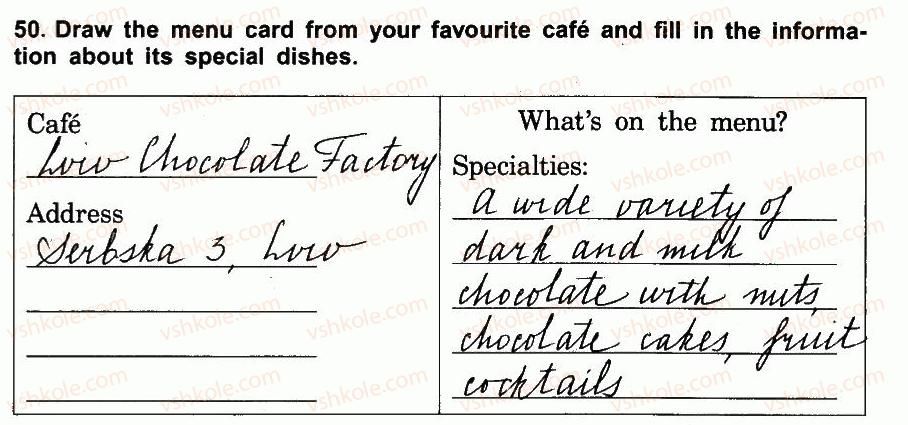 50. Draw the menu card from your favourite café and fill in the informa-
tion about its special dishes.
Café
Lviv Chocolate Factory
Address
Serbska 3, Lviv
What's on the menu?
Specialties:
A wide variety of
dark and milk
chocolate with nuts,
chocolate cakes, fruit
cocktails
vshkole.com